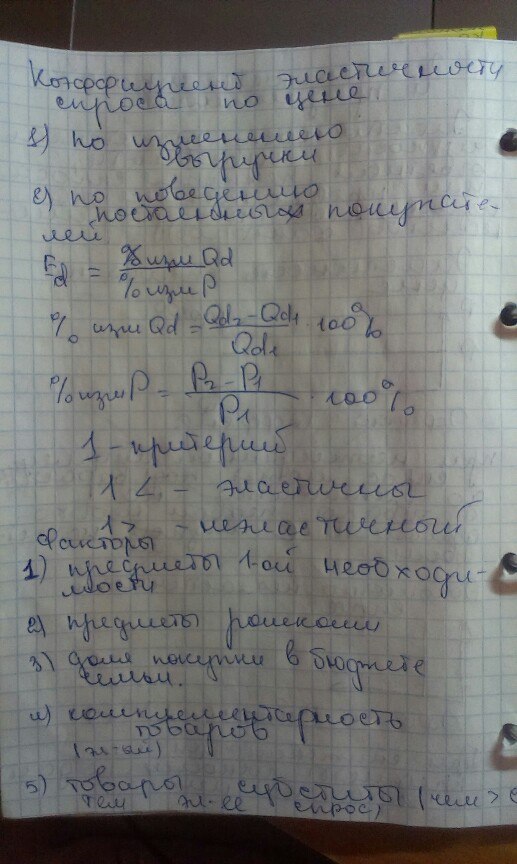 Коэффициент эластичности
спроса по цене
1) по изменению
выручки
2) по поведению
постоянных покупате-
лей
Ed = % изм Qd / % изм P
% изм Qd = Qd2 - Qd1 / Qd1 · 100%
% изм P = P2 - P1 / P1 · 100%
1 - критерий
1 < - эластичны
1 > - неэластичный
Факторы
1) предметы 1-ой необходи-
мости
2) предметы роскоши
3) доля покупки в бюджете
семьи.
4) комплементарность
товаров
(эл-ый)
5) товары субституты (чем >
тем эл-ее спрос)